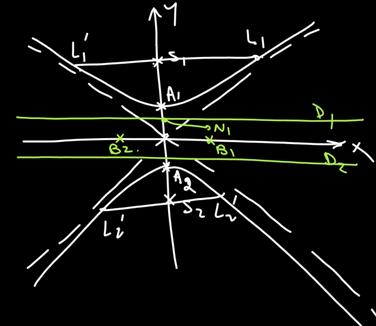 Y
L₁' S₁ L₁
A₁
D₁
N₁
B₂ B₁ X
D₂
A₂
L₂' S₂ L₂'